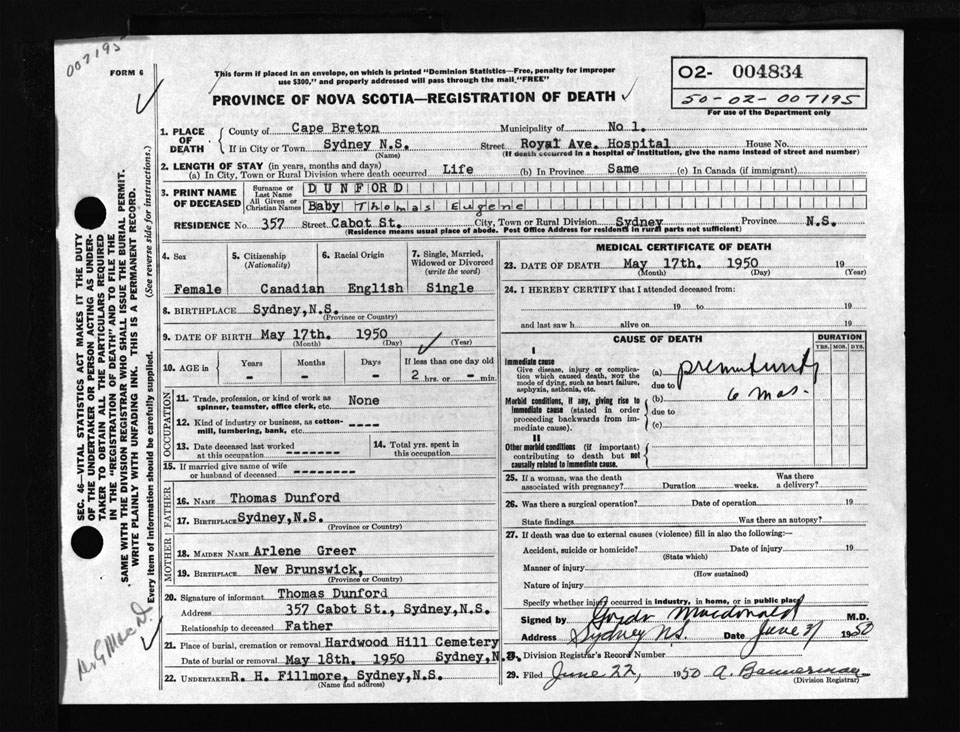 007195
FORM 6
This form if placed in an envelope, on which is printed "Dominion Statistics—Free, penalty for improper
use $300," and properly addressed will pass through the mail, "FREE"
PROVINCE OF NOVA SCOTIA—REGISTRATION OF DEATH
O2- 004834
50-02-007195
For use of the Department only
1. PLACE OF DEATH
County of Cape Breton Municipality of No 1.
If in City or Town Sydney N.S. Street Royal Ave. Hospital House No.
(Name) (If death occurred in a hospital or institution, give the name instead of street and number)
2. LENGTH OF STAY (in years, months and days)
(a) In City, Town or Rural Division where death occurred Life (b) In Province Same (c) In Canada (if immigrant)
3. PRINT NAME OF DECEASED
Surname or Last Name DUNFORD
All Given or Christian Names Baby Thomas Eugene
RESIDENCE No. 357 Street Cabot St. City, Town or Rural Division Sydney Province N.S.
(Residence means usual place of abode. Post Office Address for residents in rural parts not sufficient)
4. Sex
Female
5. Citizenship
(Nationality)
Canadian
6. Racial Origin
English
7. Single, Married,
Widowed or Divorced
(write the word)
Single
8. BIRTHPLACE Sydney,N.S.
(Province or Country)
9. DATE OF BIRTH May 17th. 1950
(Month) (Day) (Year)
10. AGE in
Years Months Days If less than one day old
- - - 2 hrs. or - min.
OCCUPATION
11. Trade, profession, or kind of work as
spinner, teamster, office clerk, etc. None
12. Kind of industry or business, as cotton-
mill, lumbering, bank, etc. ----
13. Date deceased last worked
at this occupation -------
14. Total yrs. spent in
this occupation
15. If married give name of wife
or husband of deceased -------
FATHER
16. NAME Thomas Dunford
17. BIRTHPLACE Sydney,N.S.
(Province or Country)
MOTHER
18. MAIDEN NAME Arlene Greer
19. BIRTHPLACE New Brunswick,
(Province or Country)
20. Signature of informant Thomas Dunford
Address 357 Cabot St., Sydney,N.S.
Relationship to deceased Father
21. Place of burial, cremation or removal Hardwood Hill Cemetery
Date of burial or removal May 18th. 1950 Sydney,N.S.
22. UNDERTAKER R. H. Fillmore, Sydney,N.S.
(Name and address)
MEDICAL CERTIFICATE OF DEATH
23. DATE OF DEATH May 17th. 1950 19
(Month) (Day) (Year)
24. I HEREBY CERTIFY that I attended deceased from:
19 to 19
and last saw h alive on 19
CAUSE OF DEATH
DURATION
YRS. MOS. DYS.
I
Immediate cause
Give disease, injury or complica-
tion which caused death, NOT the
mode of dying, such as heart failure,
asphyxia, asthenia, etc.
(a) prematurity
due to
Morbid conditions, if any, giving rise to
immediate cause (stated in order
proceeding backwards from im-
mediate cause).
(b) 6 mos.
due to
(c)
II
Other morbid conditions (if important)
contributing to death but not
causally related to immediate cause.
25. If a woman, was the death
associated with pregnancy? Duration weeks. Was there
a delivery?
26. Was there a surgical operation? Date of operation 19
State findings Was there an autopsy?
27. If death was due to external causes (violence) fill in also the following:—
Accident, suicide or homicide? Date of injury 19
(State which)
Manner of injury
(How sustained)
Nature of injury
Specify whether injury occurred in industry, in home, or in public place
Signed by Macdonald M.D.
Address Sydney NS. Date June 1950
28. Division Registrar's Record Number
29. Filed June 22, 1950 A. Bannerman
(Division Registrar)
SEC. 46—VITAL STATISTICS ACT MAKES IT THE DUTY
OF THE UNDERTAKER OR PERSON ACTING AS UNDER-
TAKER TO OBTAIN ALL THE PARTICULARS REQUIRED
IN THE "REGISTRATION OF DEATH" AND TO FILE THE
SAME WITH THE DIVISION REGISTRAR WHO SHALL ISSUE THE BURIAL PERMIT.
WRITE PLAINLY WITH UNFADING INK. THIS IS A PERMANENT RECORD.
Every item of information should be carefully supplied. (See reverse side for instructions.)